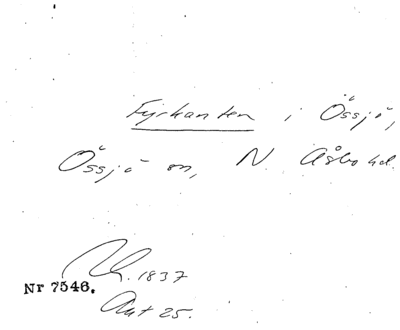 Fyrkanten i Össjö,
Össjö sn, N. Åsbo hd.
1837
Nr 7546.
Ant 25.